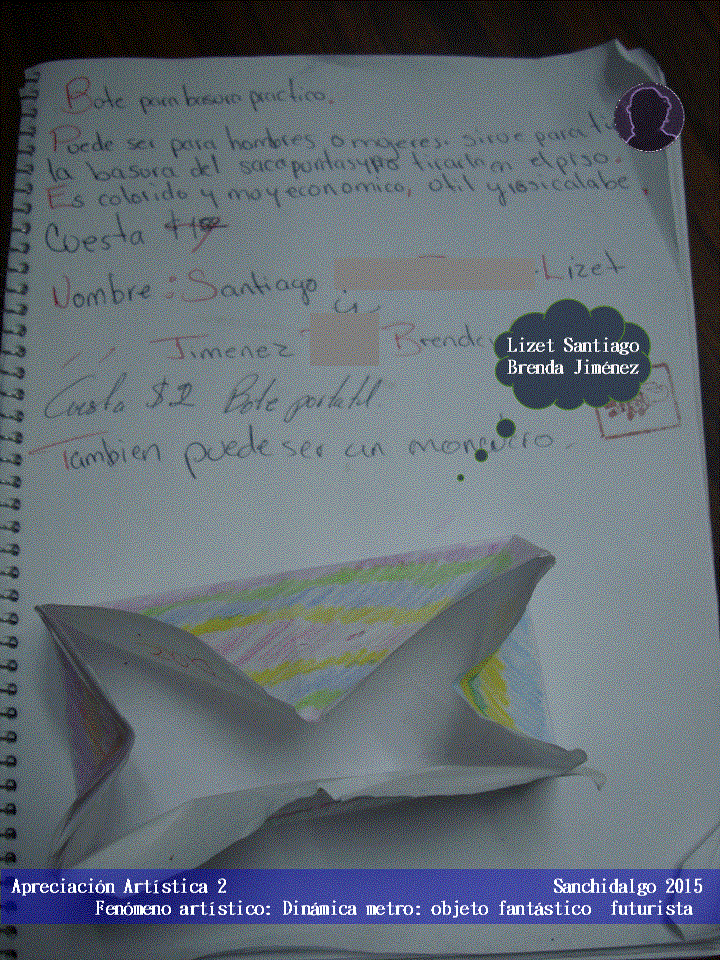 Bote para basura practico.
Puede ser para hombres o mujeres. sirve para
la basura del sacapuntas y no tirarla en el piso.
Es colorido y muy economico, util y
Cuesta
Nombre: Santiago Lizet
Jimenez Brenda
Lizet Santiago
Brenda Jiménez
Cuesta $2 Bote portatil
Tambien puede ser un monedero.
Apreciación Artística 2 Sanchidalgo 2015
Fenómeno artístico: Dinámica metro: objeto fantástico futurista